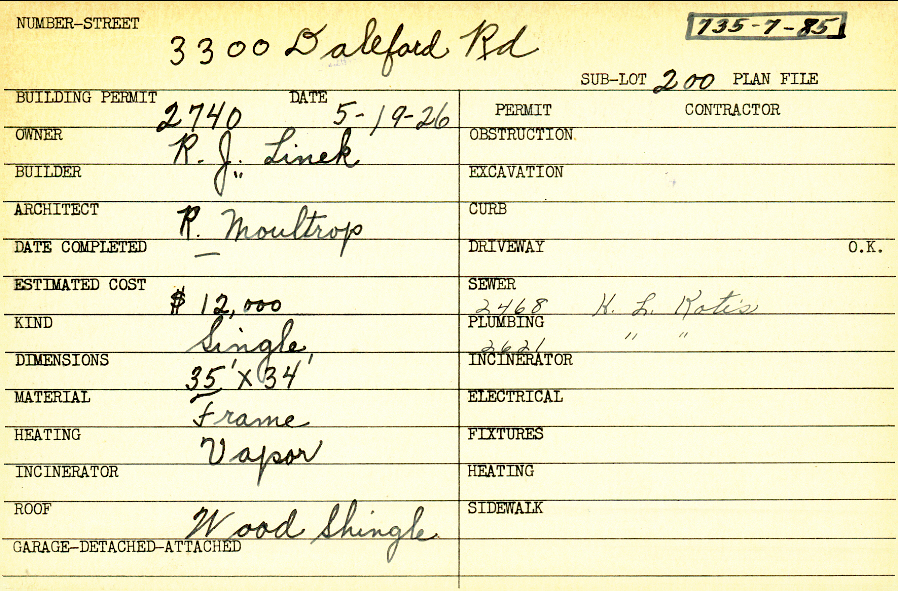 NUMBER-STREET 3300 Daleford Rd 735-7-85
SUB-LOT 200 PLAN FILE
BUILDING PERMIT 2740 DATE 5-19-26
OWNER R. J. Linek
BUILDER "
ARCHITECT R. Moultrop
DATE COMPLETED —
ESTIMATED COST $ 12,000
KIND Single
DIMENSIONS 35' X 34'
MATERIAL Frame
HEATING Vapor
INCINERATOR
ROOF Wood Shingle
GARAGE-DETACHED-ATTACHED
PERMIT CONTRACTOR
OBSTRUCTION
EXCAVATION
CURB
DRIVEWAY O.K.
SEWER 2468 K. L. Kotis
PLUMBING 2621 " "
INCINERATOR
ELECTRICAL
FIXTURES
HEATING
SIDEWALK